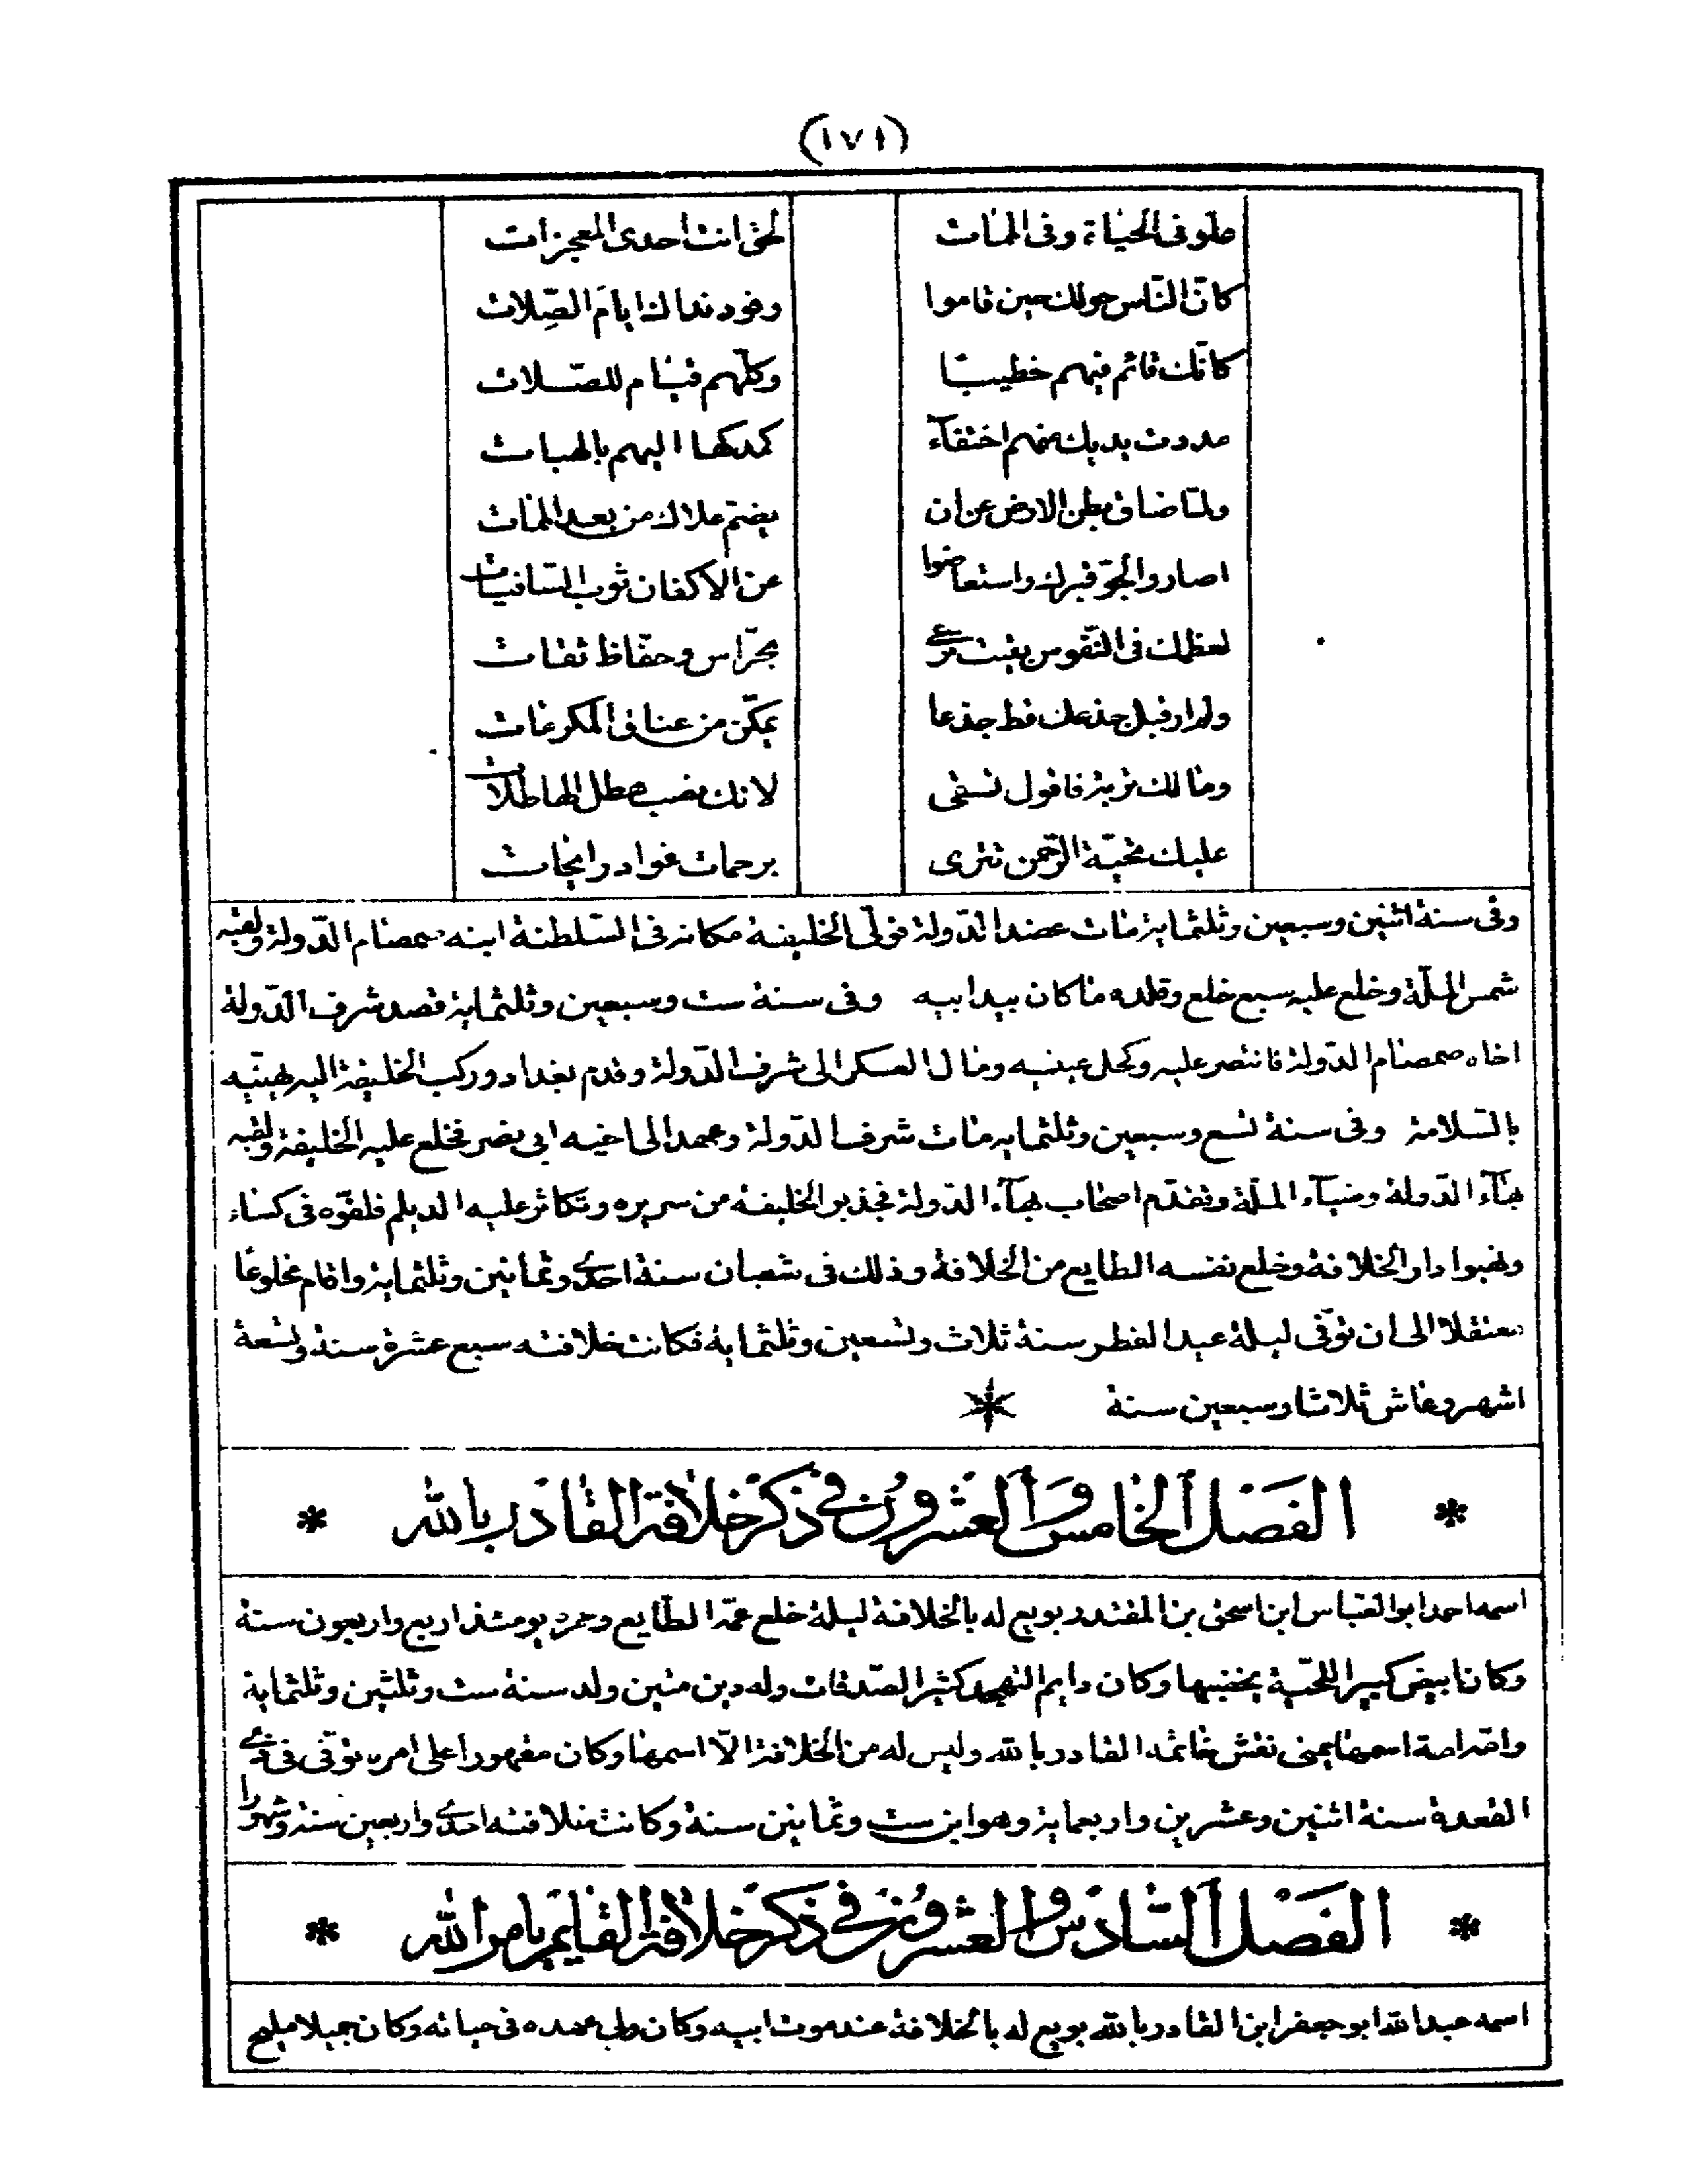 (١٧١)
علو فى الحياة وفى الممات لحق انت احدى المعجزات
كانّ الناس حولك حين قاموا وفود نداك ايام الصِّلات
كانّك قائم فيهم خطيبا وكلّهم قيام للصّلات
مددت يديك نحوهم احتفآء كمدكها اليهم بالهبات
ولمّا ضاق بطن الارض عن ان يضمّ علاك من بعد الممات
اصاروا الجوّ قبرك واستعاضوا عن الاكفان ثوب السّافيات
لعظمك فى النّفوس بقيت ترعى بحرّاس وحفّاظ ثقات
ولم ار قبل جذعك قط جذعا يمكّن من عناق المكرمات
ومالك تربة فاقول تسقى لانك نصب هطل الهاطلات
عليك تحيّة الرّحمن تترى برحمات غواد رائحات
وفى سنة اثنين وسبعين وثلثماية مات عضد الدّولة فولّى الخليفة مكانه فى السّلطنة ابنه صمصام الدّولة ولقبه
شمس الملّة وخلع عليه سبع خلع وقلده ما كان بيد ابيه وفى سنة ست وسبعين وثلثماية قصد شرف الدّولة
اخاه صمصام الدولة فانتصر عليه وكحل عينيه ومال العسكر الى شرف الدّولة وقدم بغداد وركب الخليفة اليه يهنّيه
بالسّلامة وفى سنة تسع وسبعين وثلثماية مات شرف الدّولة وعهد الى اخيه ابى نصر فخلع عليه الخليفة ولقبه
بهآء الدّولة وضيآء الملّة وتقدّم اصحاب بهآء الدّولة فجذبو الخليفة من سريره وتكاثر عليه الديلم فلفوّه فى كساء
ونهبوا دار الخلافة وخلع نفسه الطايع من الخلافة وذلك فى شعبان سنة احدى وثمانين وثلثماية واقام مخلوعًا
معتقلا الى ان توفّى ليلة عيد الفطر سنة ثلاث وتسعين وثلثماية فكانت خلافته سبع عشرة سنة وتسعة
اشهر وعاش ثلاثا وسبعين سنة *
* الفَصْل الخامس وَالعشرُون فى ذكر خلافة القادر بالله *
اسمه احمد ابو العبّاس ابن اسحق بن المقتدر بويع له بالخلافة ليلة خلع عمّه الطّايع وعمره يومئذ اربع واربعون سنة
وكان ابيض كبير اللّحية يخضبها وكان دايم التهجد كثير الصّدقات وله دين متين ولد سنة ست وثلثين وثلثماية
وامّه امة اسمها يمنى نقش خاتمه القادر بالله وليس له من الخلافة الّا اسمها وكان مقهورا على امره توفّى فى ذى
القعدة سنة اثنين وعشرين واربعماية وهو ابن ست وثمانين سنة وكانت خلافته احدى واربعين سنة وشهورا
* الفَصْل السّادس والعشرُون فى ذكر خلافة القايم بامر الله *
اسمه عبد الله ابو جعفر ابن القادر بالله بويع له بالخلافة عند موت ابيه وكان ولى عهده فى حياته وكان جميلا مليح